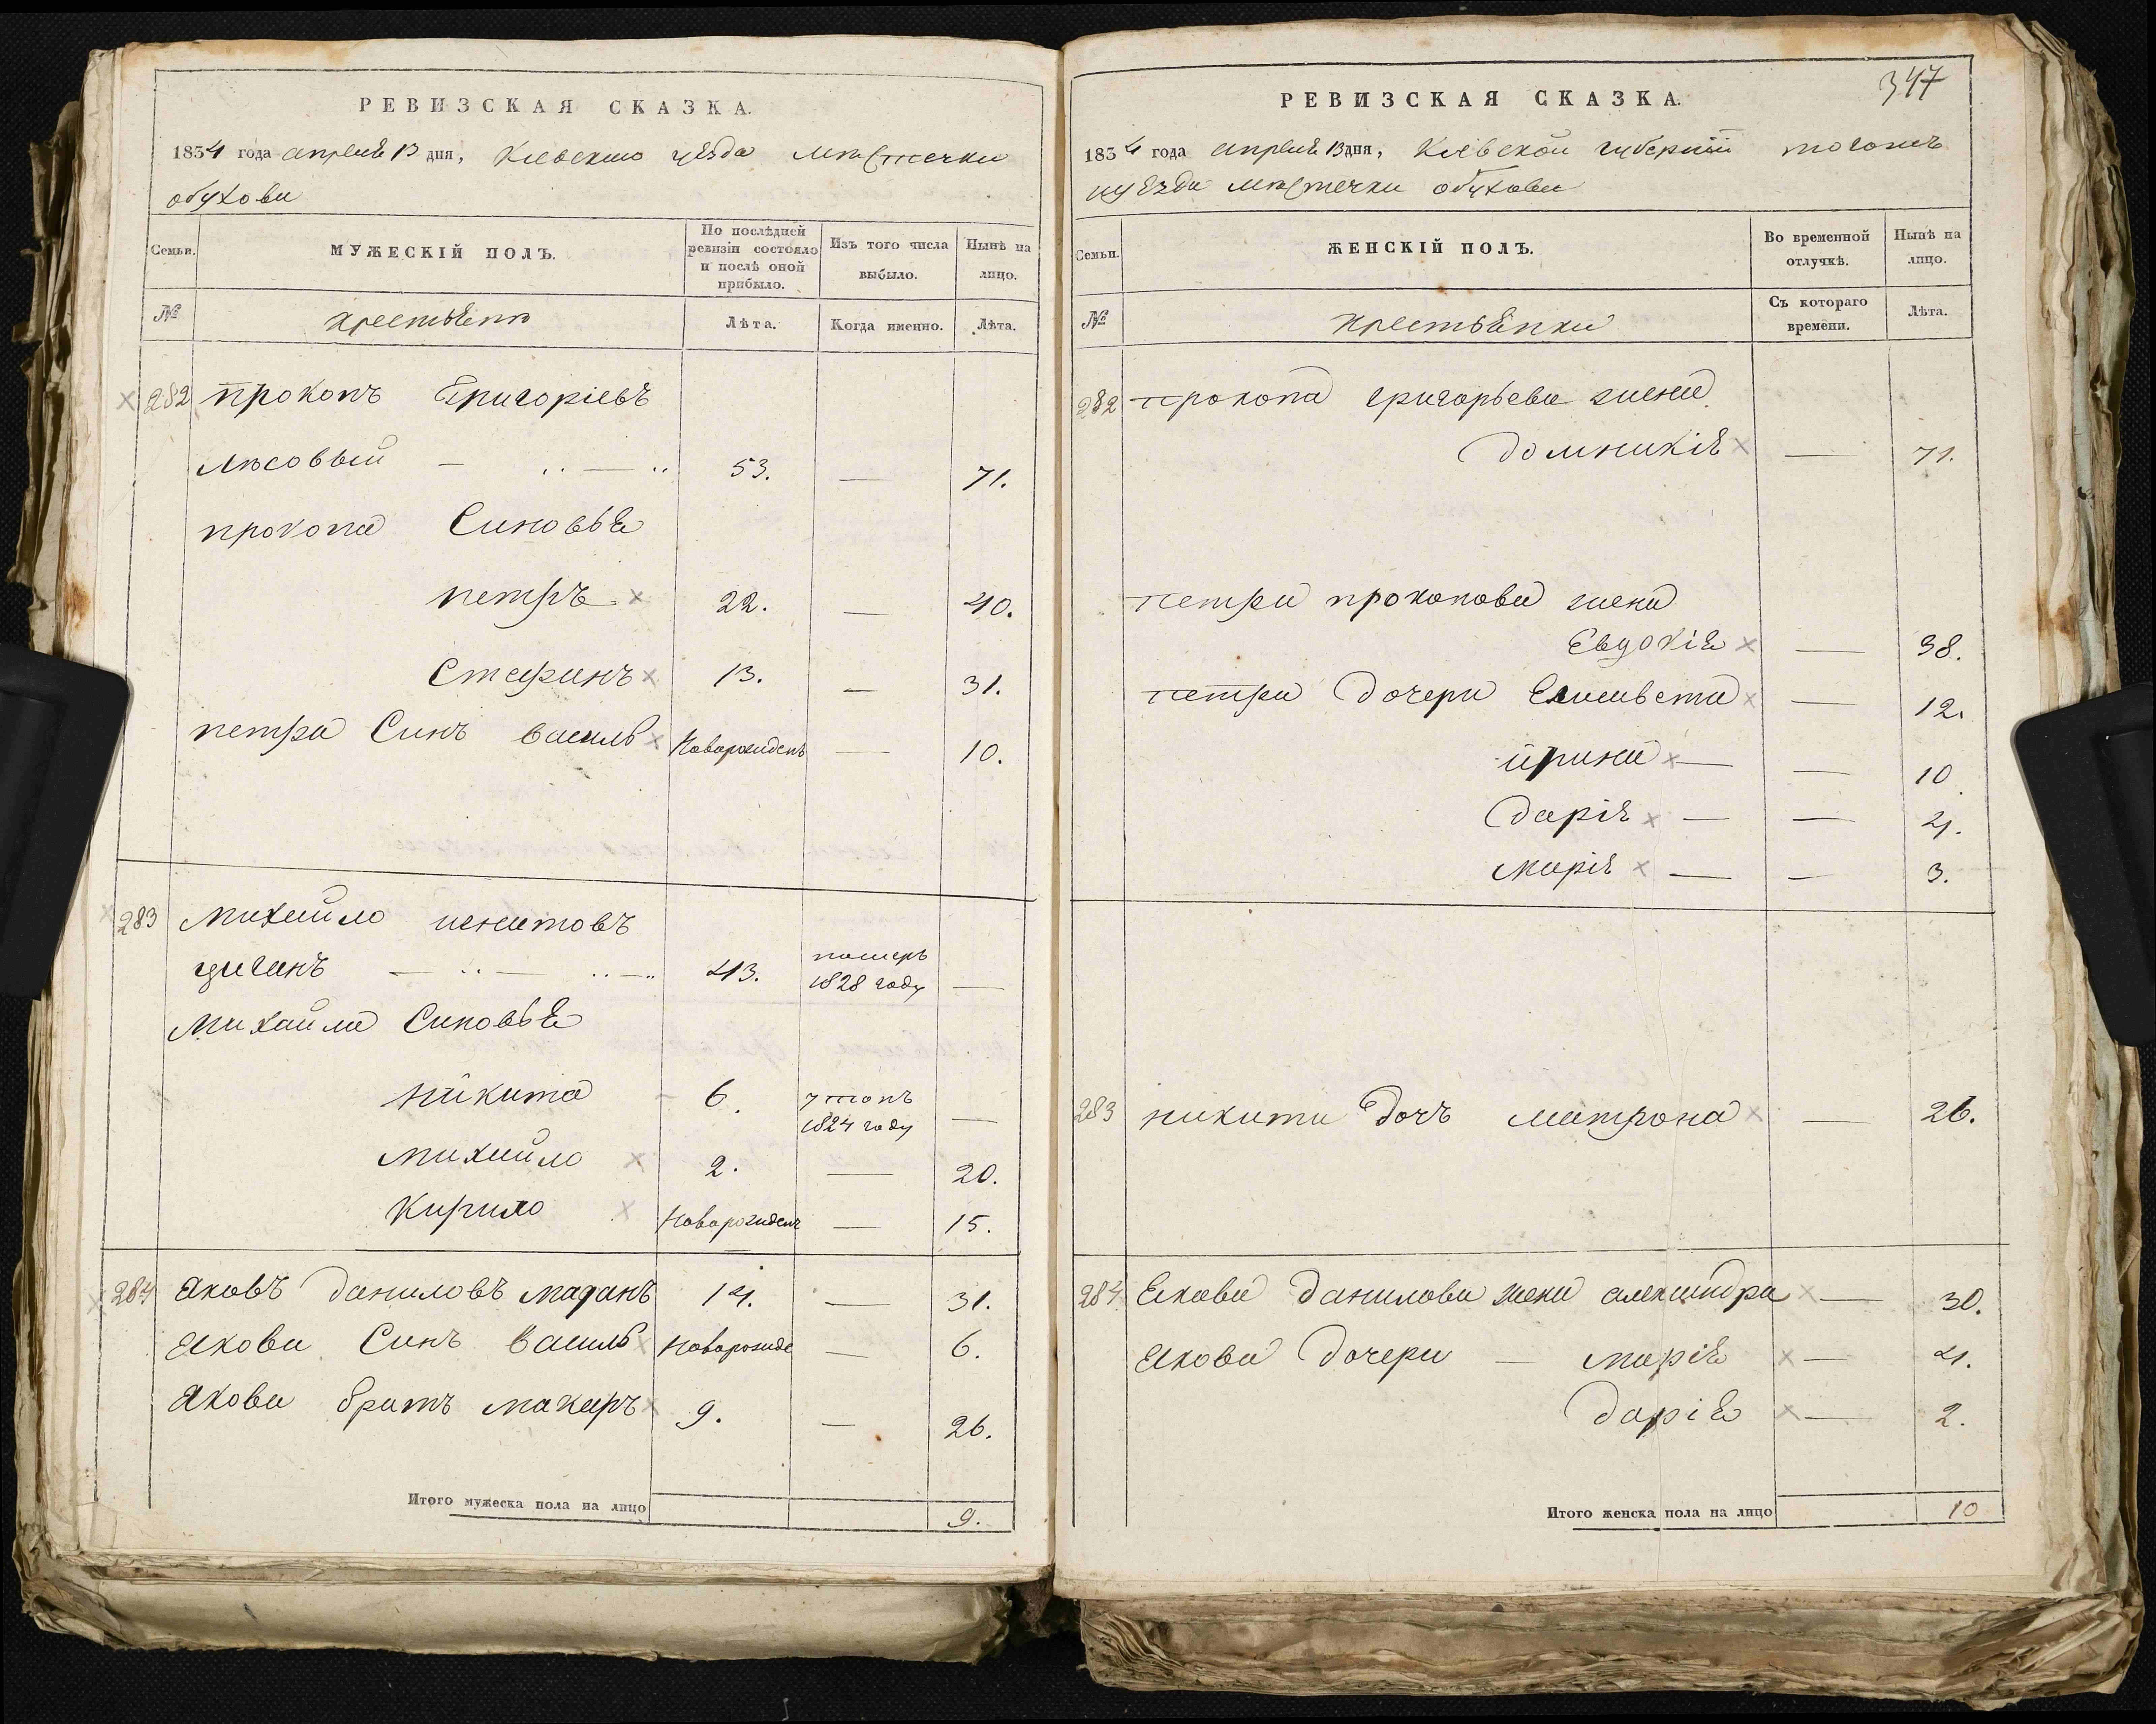 РЕВИЗСКАЯ СКАЗКА.
1834 года апреля 13 дня, Киевскаго уезда местечка
обухова
Семьи.
МУЖЕСКІЙ ПОЛЪ.
По послѣдней ревизіи состояло и послѣ оной прибыло.
Изъ того числа выбыло.
Нынѣ на лицо.
№
крестьяне
Лѣта.
Когда именно.
Лѣта.
282 прокопъ Григоріевъ
лисовый — 53. — 71.
прокопа Синовья
петръ 22. — 40.
Стефанъ 13. — 31.
петра Синъ василь Новорожденъ — 10.
283 михайло игнатовъ
циганъ — 43. померъ 1828 году —
михайла Синовья
никита 6. утопъ 1824 году —
михайло 2. — 20.
Кирило новорожденъ — 15.
284 яковъ даниловъ маданъ 14. — 31.
якова Синъ василь новорожде — 6.
якова братъ макаръ 9. — 26.
Итого мужеска пола на лицо 9.
347
РЕВИЗСКАЯ СКАЗКА.
1834 года апреля 13 дня, Кіевской губерніи тогожъ
уезда местечка обухова
Семьи.
ЖЕНСКІЙ ПОЛЪ.
Во временной отлучкѣ.
Нынѣ на лицо.
№
крестьянки
Съ котораго времени.
Лѣта.
282 прокопа григорьева жена
домникія — 71.
петра прокопова жена
Евдокія — 38.
петра дочери Елисавета — 12.
ирина — — 10
дарія — — 4.
марія — — 3.
283 никити дочъ матрона — 26.
284 якова данилова жена александра — 30.
якова дочери — марія — 4.
дарія — 2.
Итого женска пола на лицо 10